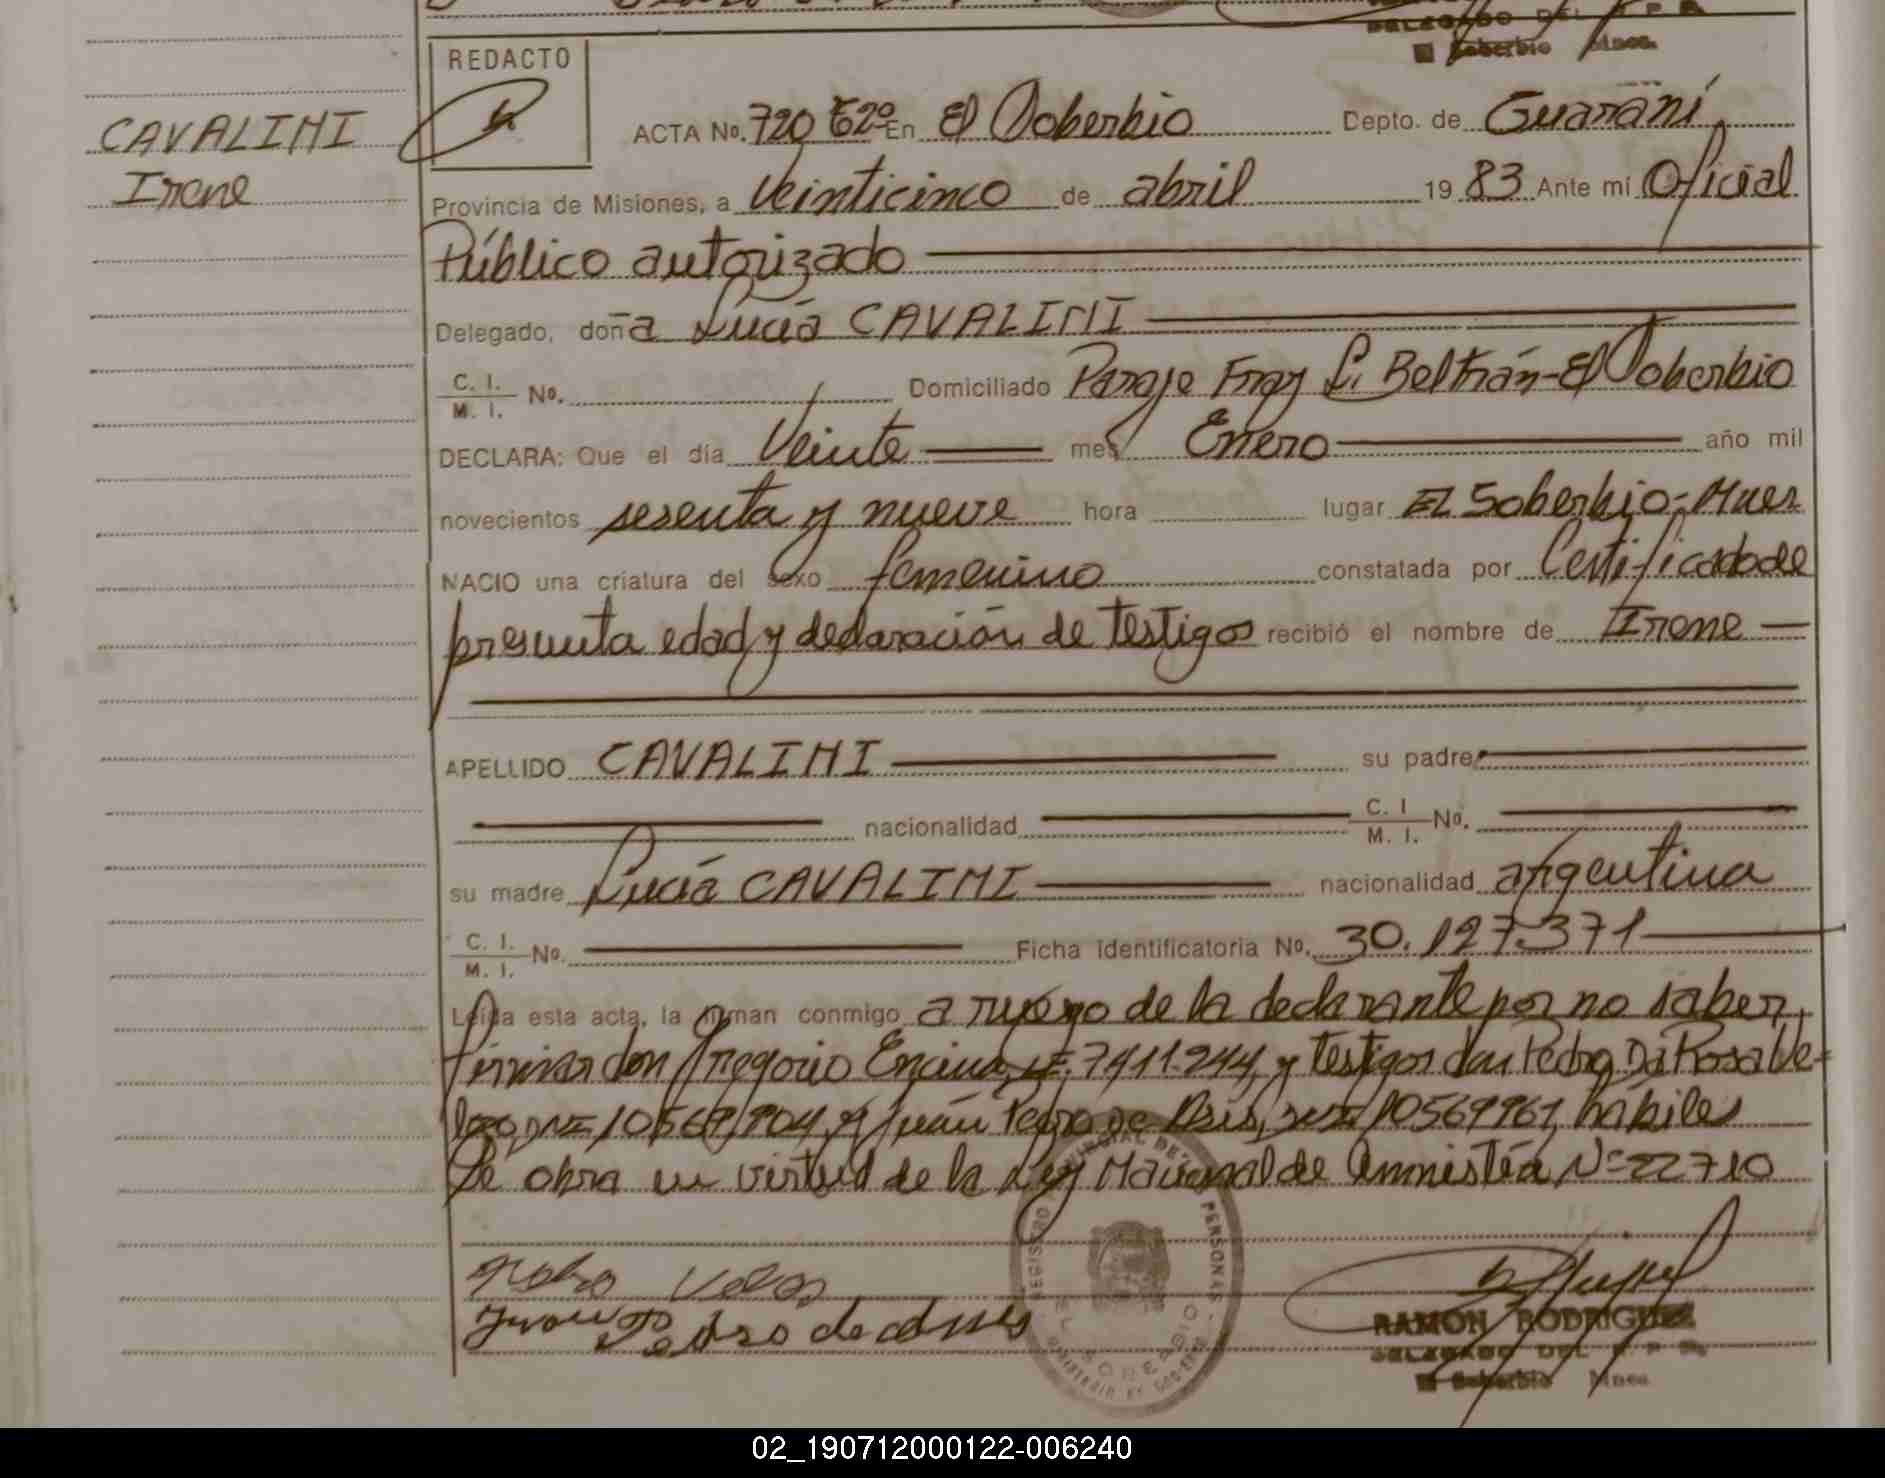 DELEGADO DEL R. P. P.
El Soberbio Mnes.
REDACTO
CAVALIMI
Irene
ACTA No. 720 Tº 2º En El Soberbio Depto. de Guaraní
Provincia de Misiones, a Veinticinco de abril 19 83 Ante mi Oficial
Público autorizado
Delegado, doña Lucía CAVALIMI
C. I.
M. I. No. Domiciliado Paraje Fray L. Beltrán - El Soberbio
DECLARA: Que el día Veinte mes Enero año mil
novecientos sesenta y nueve hora lugar El Soberbio - Mnes
NACIO una criatura del sexo femenino constatada por Certificado de
presunta edad y declaración de testigos recibió el nombre de Irene
APELLIDO CAVALIMI su padre
nacionalidad C. I. M. I. No.
su madre Lucía CAVALIMI nacionalidad argentina
C. I.
M. I. No. Ficha identificatoria No. 30.127.371
Leída esta acta, la firman conmigo a ruego de la declarante por no saber
firmar don Gregorio Encina, LE. 7411.244, y testigos don Pedro Da Rosa Ve-
lozo, DNI 10569904 y Juan Pedro de Asis, DNI 10569961, hábiles
Se obra en virtud de la Ley Nacional de Amnistía Nº 22710
Pedro Veloso
Juan Pedro de Assis
REGISTRO PROVINCIAL DE PERSONAS
EL SOBERBIO
MINISTERIO DE GOBIERNO
RAMON RODRIGUEZ
DELEGADO DEL R. P. P.
El Soberbio Mnes.
02_190712000122-006240